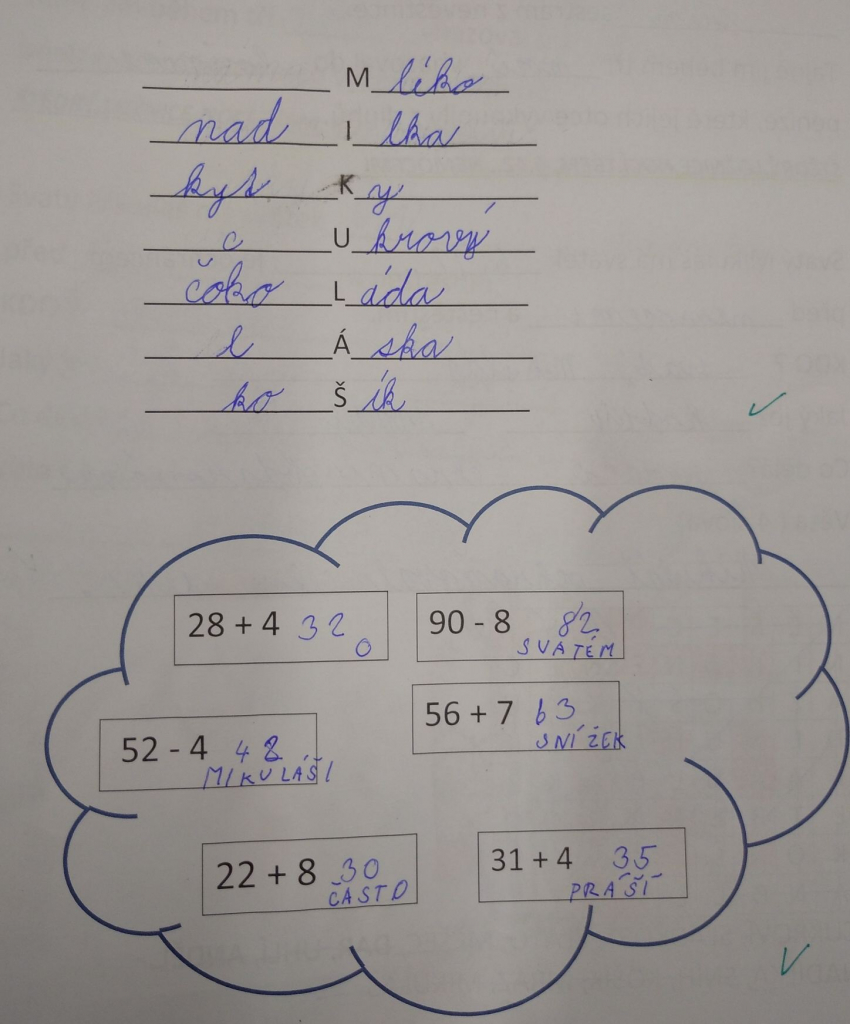 M léko
nad I lka
kyt K y
c U krový
čoko L áda
l Á ska
ko Š ík
28 + 4 32
O
90 - 8 82
SVATÉM
52 - 4 48
MIKULÁŠI
56 + 7 63
SNÍŽEK
22 + 8 30
ČASTO
31 + 4 35
PRÁŠÍ